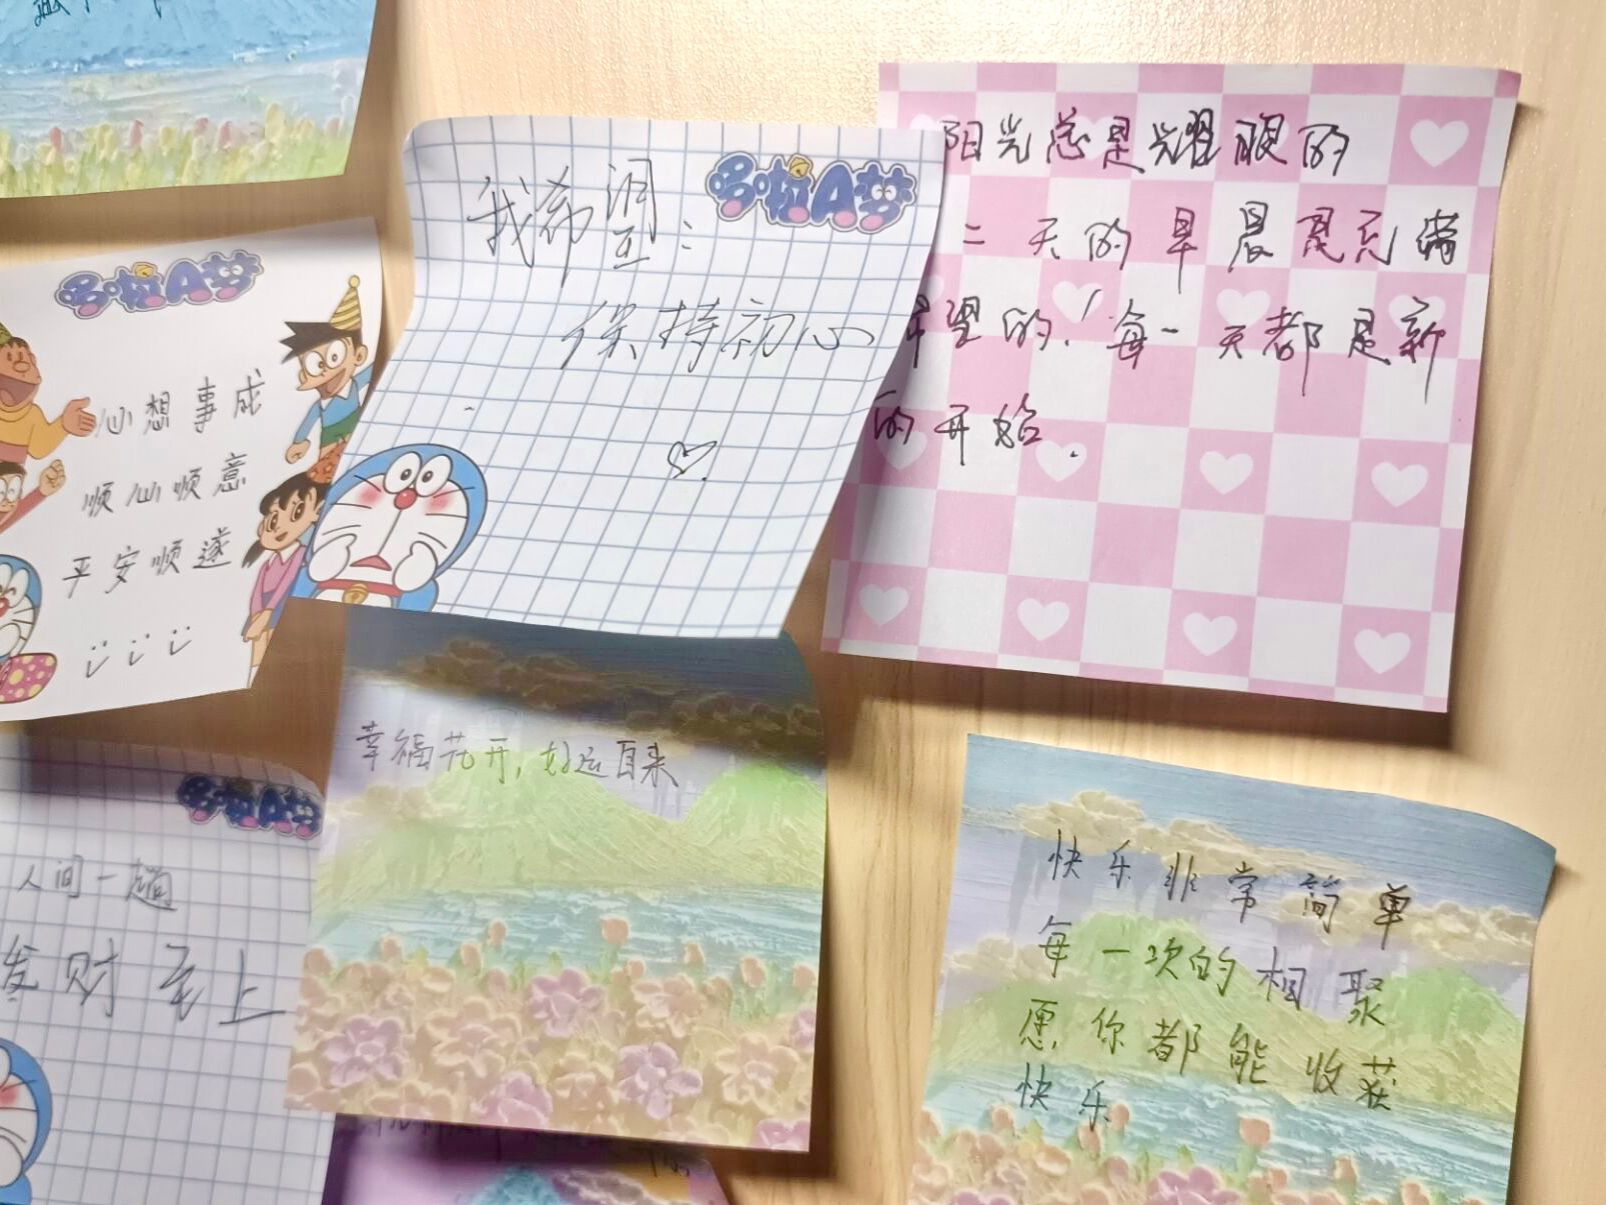 哆啦A梦
心想事成
顺心顺意
平安顺遂
哆啦A梦
我希望：
保持初心
阳光总是耀眼的
二天的早晨是充满
希望的！每一天都是新
的开始.
哆啦A梦
人间一趟
发财至上
幸福花开，好运自来
快乐非常简单
每一次的相聚
愿你都能收获
快乐